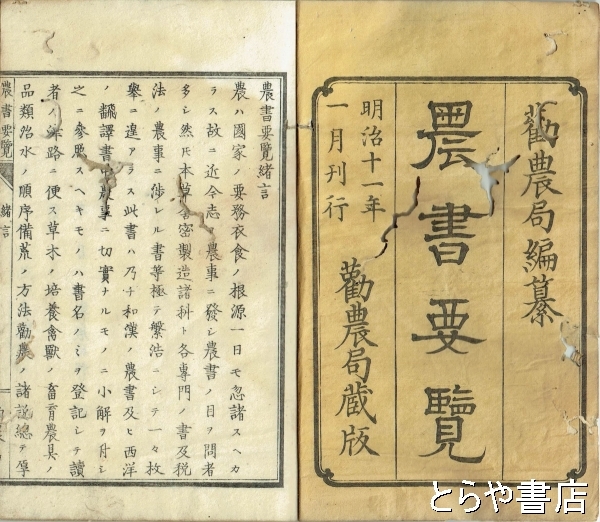 勸農局編纂
農書要覽
明治十一年
一月刊行
勸農局藏版
農書要覽緒言
農ハ國家ノ要務衣食ノ根源一日モ忽諸スヘカ
ラス故ニ近今志ヲ農事ニ發シ農書ノ目ヲ問者
多シ然㪽本草舎密製造諸科ト各專門ノ書及税
法ノ農事ニ涉レル書等極テ繁浩ニシテ一々枚
擧ニ遑アラス此書ハ乃チ和漢ノ農書及ヒ西洋
ノ飜譯書中農事ニ切實ナルモノニ小解ヲ付シ
之ニ參照スヘキモノハ書名ノミヲ登記シテ讀
者ノ捷路ニ便ス草木ノ培養禽獸ノ畜育農具ノ
品類治水ノ順序備荒ノ方法勸農ノ諸説總テ
農書要覽
緒言
とらや書店